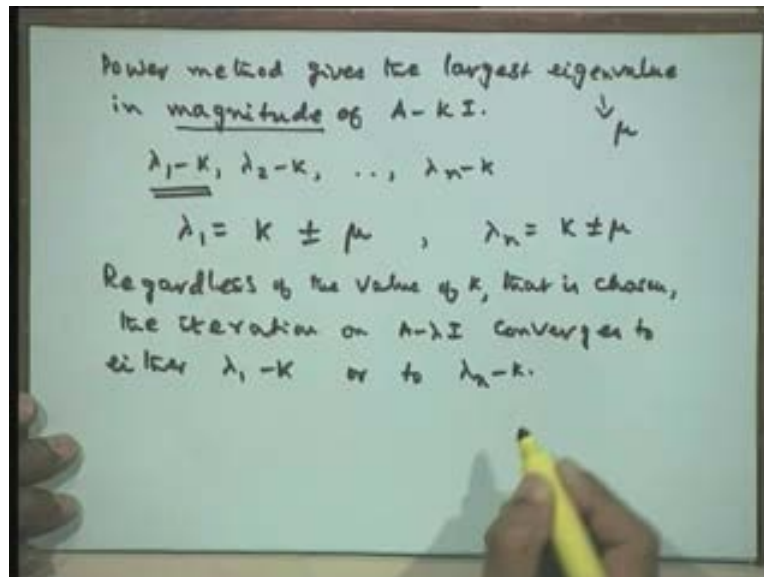 Power method gives the largest eigenvalue
in magnitude of A - K I. ↓ μ
λ₁-K, λ₂-K, .., λₙ-K
λ₁ = K ± μ , λₙ = K ± μ
Regardless of the value of K, that is chosen,
the iteration on A-λI converges to
either λ₁ - K or to λₙ - K.